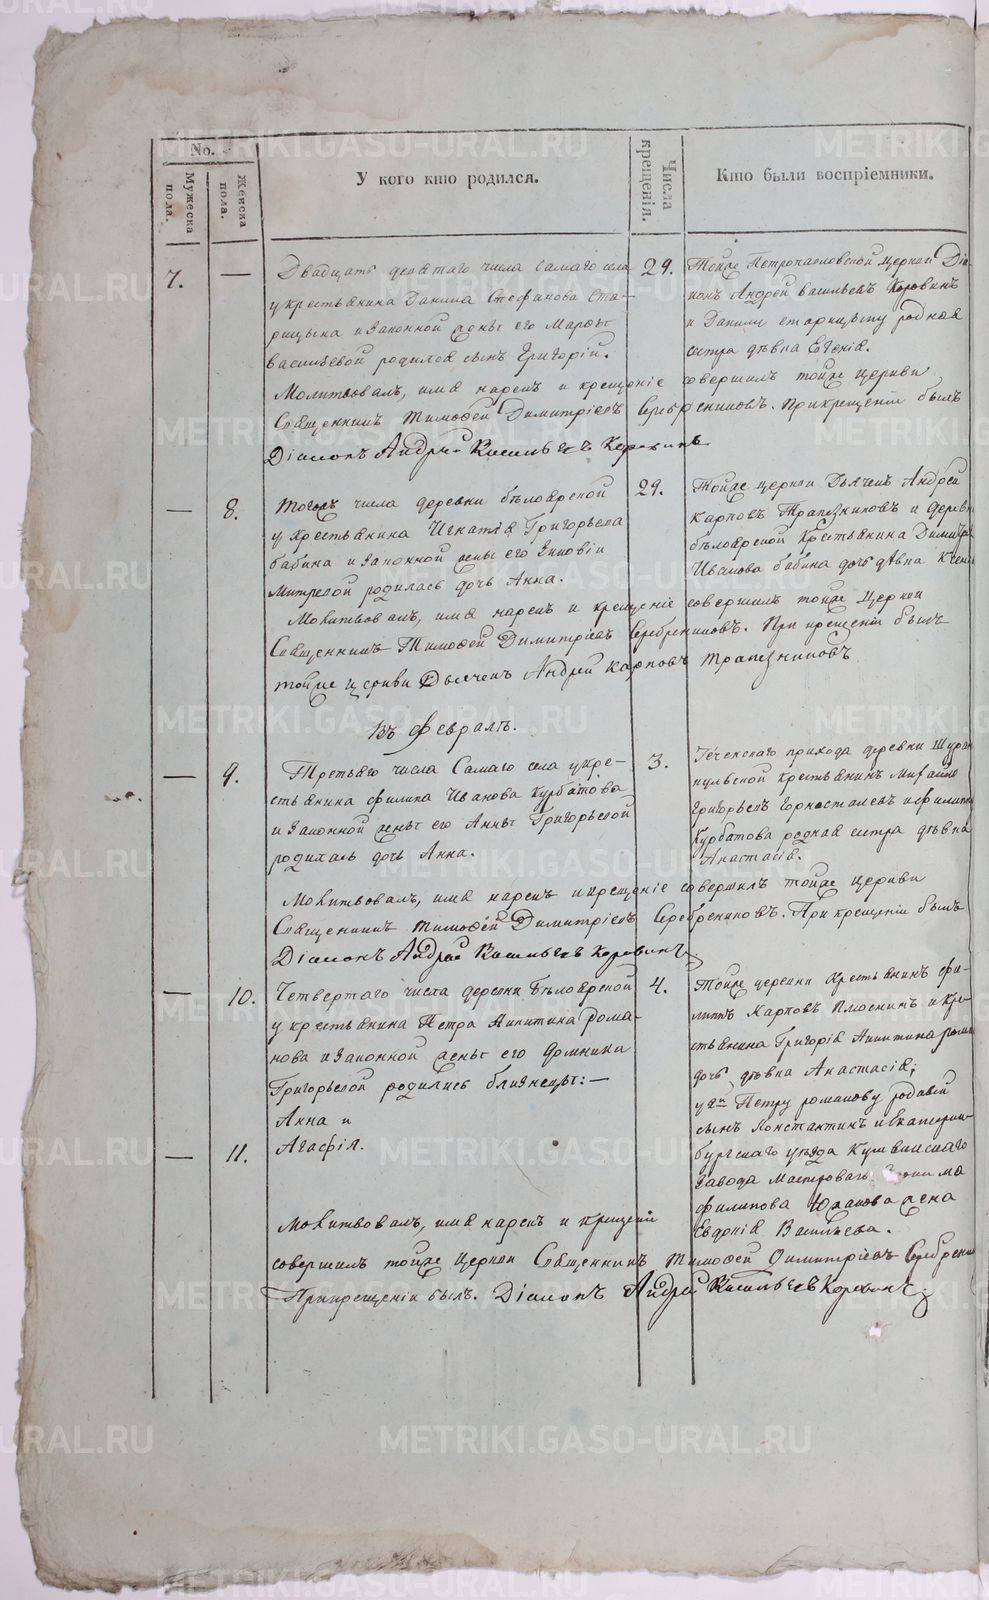 No.
Мужеска пола.
Женска пола.
У кого кто родился.
Числа крещенія.
Кто были воспріемники.
7. —
Двадцать девятаго числа Самаго села
у крестьянина Данила Стефанова Ста-
рицына и законной жены его Марѳы
васильевой родился сынъ Григорій.
29.
Тойже Петропавловской церкви Діа-
конъ Андрей васильевъ Коровинъ
и Данилы старицыну родная
сестра дѣвка Евгенія.
Молитвовалъ, имя нарекъ и крещеніе совершилъ тойже церкви
Священникъ Тимофей Димитріевъ Серебрениковъ. При крещеніи былъ
Діаконъ Андрей Васильевъ Коровинъ
— 8.
Тогожъ числа деревни бѣлоярской
у крестьянина Игнатія Григорьева
бабина и законной жены его Зиновіи
Митревой родилась дочь Анна.
29.
Тойже церкви Дьячекъ Андрей
Карповъ Трапезниковъ и деревни
бѣлоярской Крестьянина Димитрія
Иванова бабина дочь дѣвка
Молитвовалъ, имя нарекъ и крещеніе совершилъ тойже Церкви
Священникъ Тимофей Димитріевъ Серебрениковъ. При крещеніи былъ
тойже церкви Дьячекъ Андрей Карповъ Трапезниковъ
Въ Февралѣ.
— 9.
Третьяго числа Самаго села у кре-
стьянина Филипа Иванова Курбатова
и законной жены его Анны Григорьевой
родилась дочь Анна.
3.
Теченскаго прихода деревни
крестьянинъ Михайло
Григорьевъ Горносталевъ и Филипа
Курбатова родная сестра дѣвка
Анастасія.
Молитвовалъ, имя нарекъ и крещеніе совершилъ тойже церкви
Священникъ Тимофей Димитріевъ Серебрениковъ. При крещеніи былъ
Діаконъ Андрей Васильевъ Коровинъ
— 10.
Четвертаго числа деревни Бѣлоярской
у крестьянина Петра Никитина рома-
нова и законной жены его Домники
Григорьевой родились близнецы: —
Анна и
— 11.
Агафія.
4.
Тойже деревни Крестьянинъ Фи-
липъ Карповъ Плоскинъ и кре-
стьянина Григорія Никитина
дочь дѣвка Анастасія;
Петру романову родной
сынъ Константинъ и Екатерин-
бургскаго уѣзда
Завода
филипова Юханова жена
Евдокія Васильева.
Молитвовалъ, имя нарекъ и крещеніе
совершилъ тойже церкви Священникъ Тимофей Димитріевъ
При крещеніи былъ. Діаконъ Андрей Васильевъ Коровинъ.
METRIKI.GASO-URAL.RU